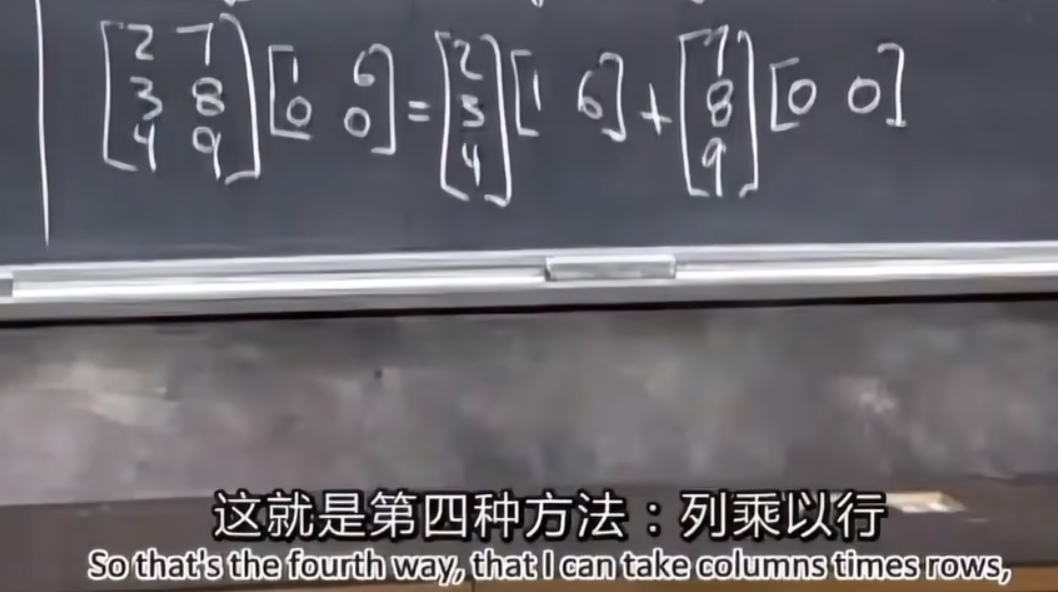 [2 7 [1 6 = [2 [1 6] + [7 [0 0]
3 8 0 0] 3 8
4 9] 4] 9]
这就是第四种方法：列乘以行
So that's the fourth way, that I can take columns times rows,